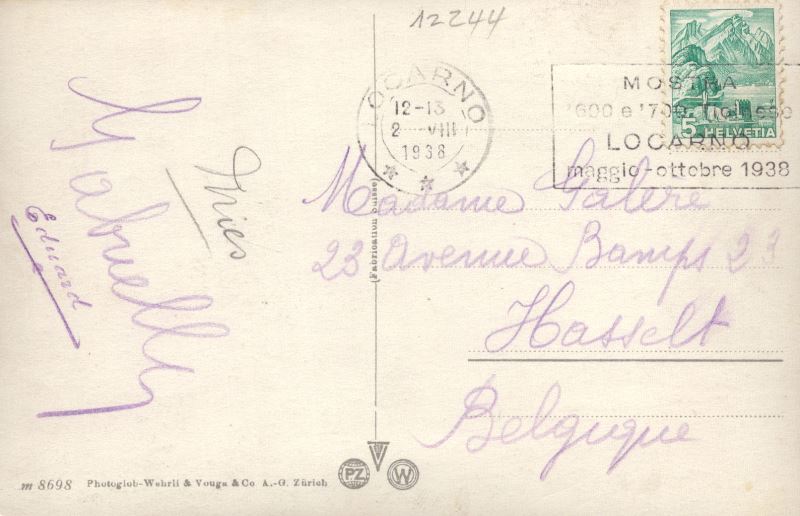 12244
LOCARNO
12-13
2 VIII
1938
MOSTRA
'600 e '700
LOCARNO
maggio-ottobre 1938
5 HELVETIA
Gabrielly
Dries
Eduard
(Fabrication Suisse)
Madame Galere
23 Avenue Bamps 23
Hasselt
Belgique
m 8698 Photoglob-Wehrli & Vouga & Co A.-G. Zürich
PZ
V
W